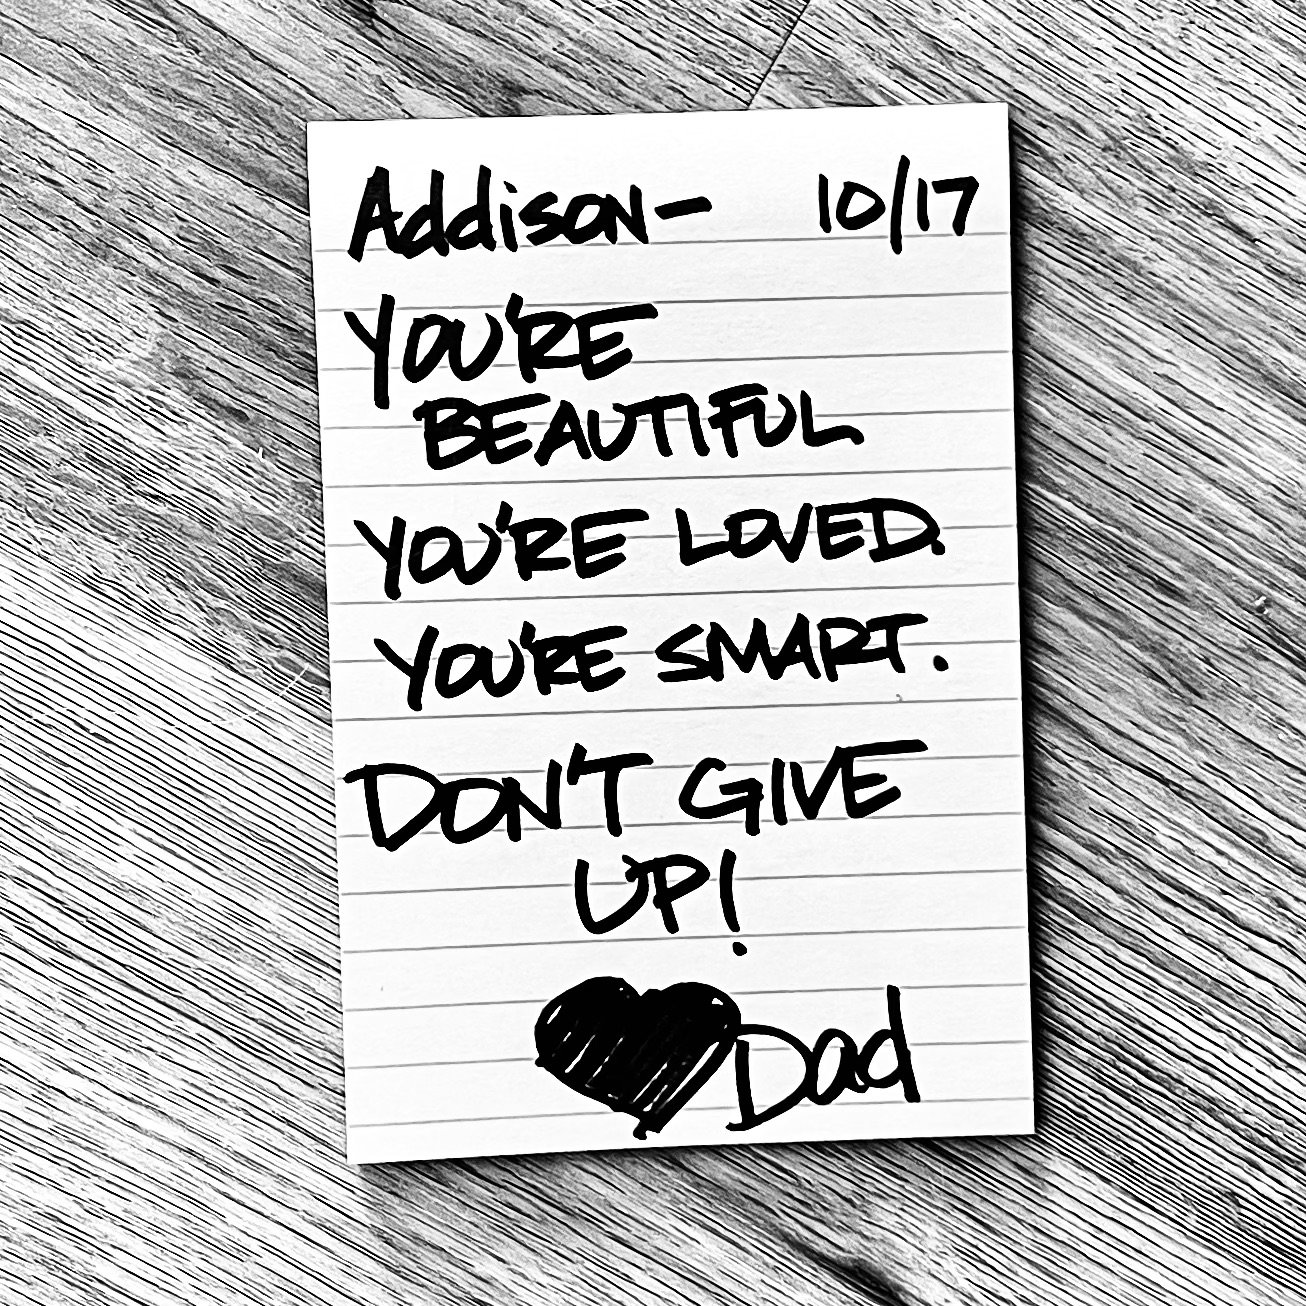 Addison- 10/17
YOU'RE
BEAUTIFUL
YOU'RE LOVED.
YOU'RE SMART.
DON'T GIVE
UP!
Dad